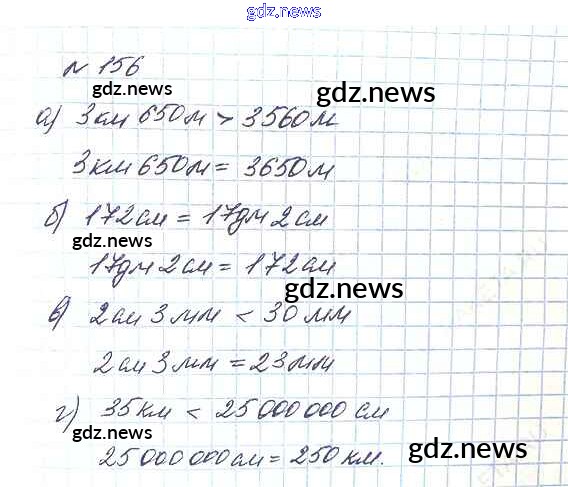 gdz.news
№ 156
gdz.news
gdz.news
а) 3км 650м > 3560м
3км 650м = 3650м
б) 172см = 17дм 2см
gdz.news
17дм 2см = 172см
gdz.news
в) 2см 3мм < 30мм
2см 3мм = 23мм
г) 35км < 25 000 000 см
gdz.news
25 000 000 см = 250 км.
gdz.news